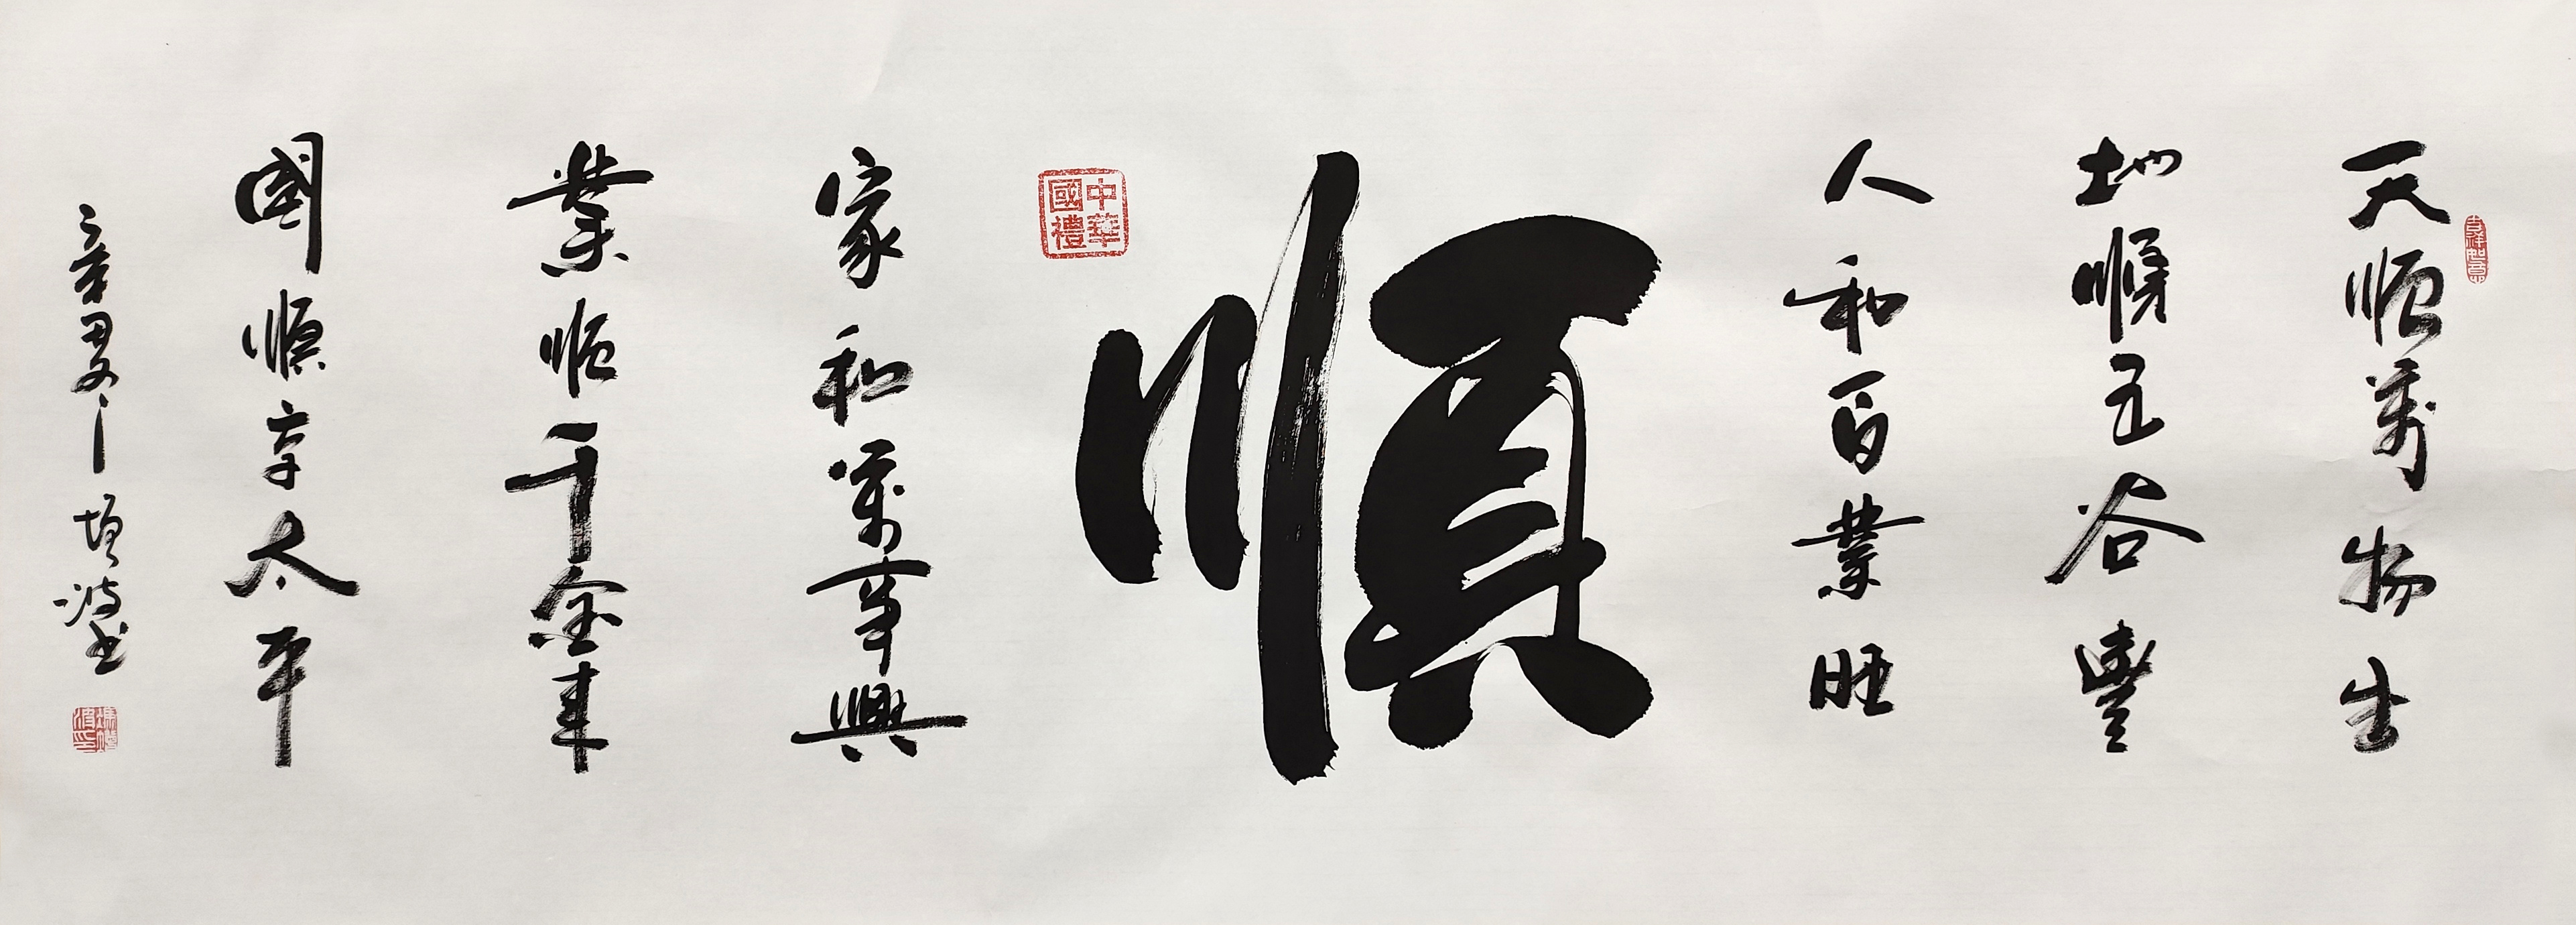 天順萬物生
吉祥如意
地順五谷豐
人和百業旺
順
中華國禮
家和萬事興
業順千金來
國順享太平
辛丑年
增波書